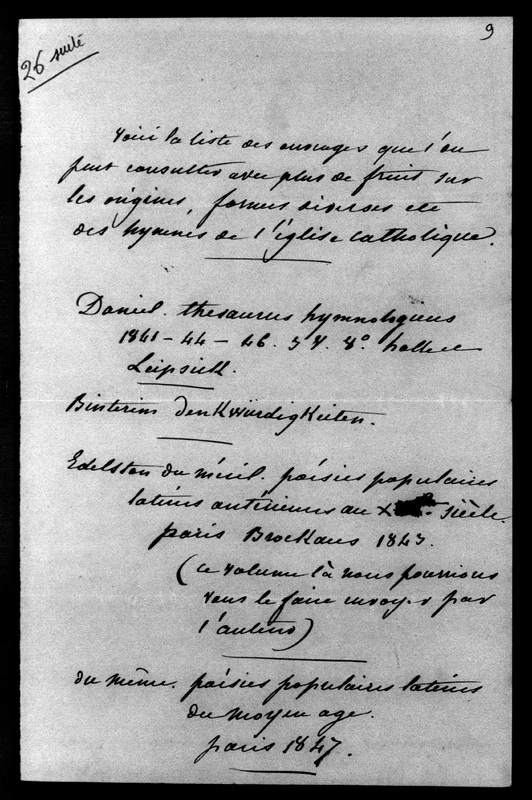 9
26 suite
Voici la liste des ouvrages que l'on
peut consulter avec plus de fruit sur
les origines, formes diverses etc
des hymnes de l'église catholique.
Daniel. thesaurus hymnologicus
1841-44-46. 3 V. 8° halle et
Leipsick.
Binterim Denkwürdigkeiten.
Edelstan du méril. poésies populaires
latines antérieures au siècle.
paris Brockaus 1843.
(ce volume là nous pourrions
vous le faire envoyer par
l'auteur)
du même. poésies populaires latines
du moyen age.
paris 1847.